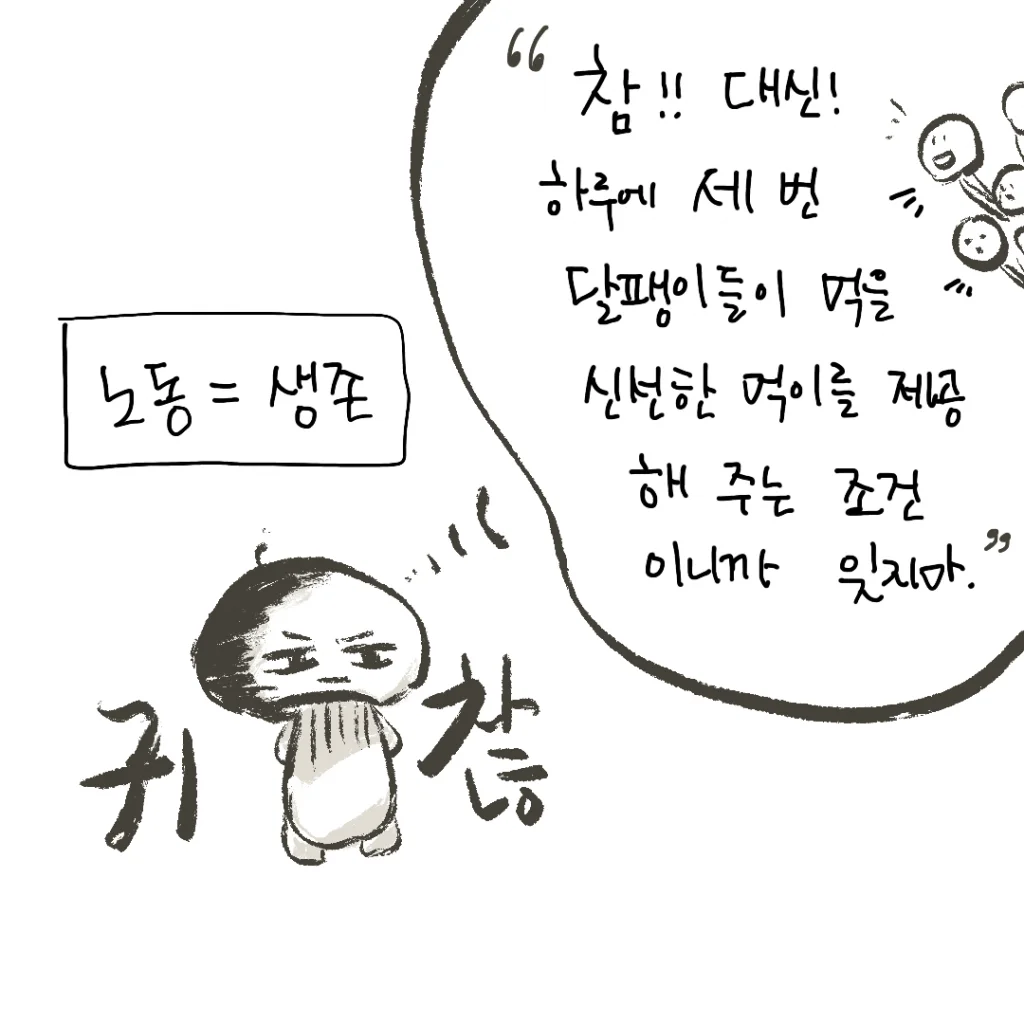 “참!! 대신!
하루에 세 번
달팽이들이 먹을
신선한 먹이를 제공
해 주는 조건
이니까 잊지마.”
노동 = 생존
귀찮